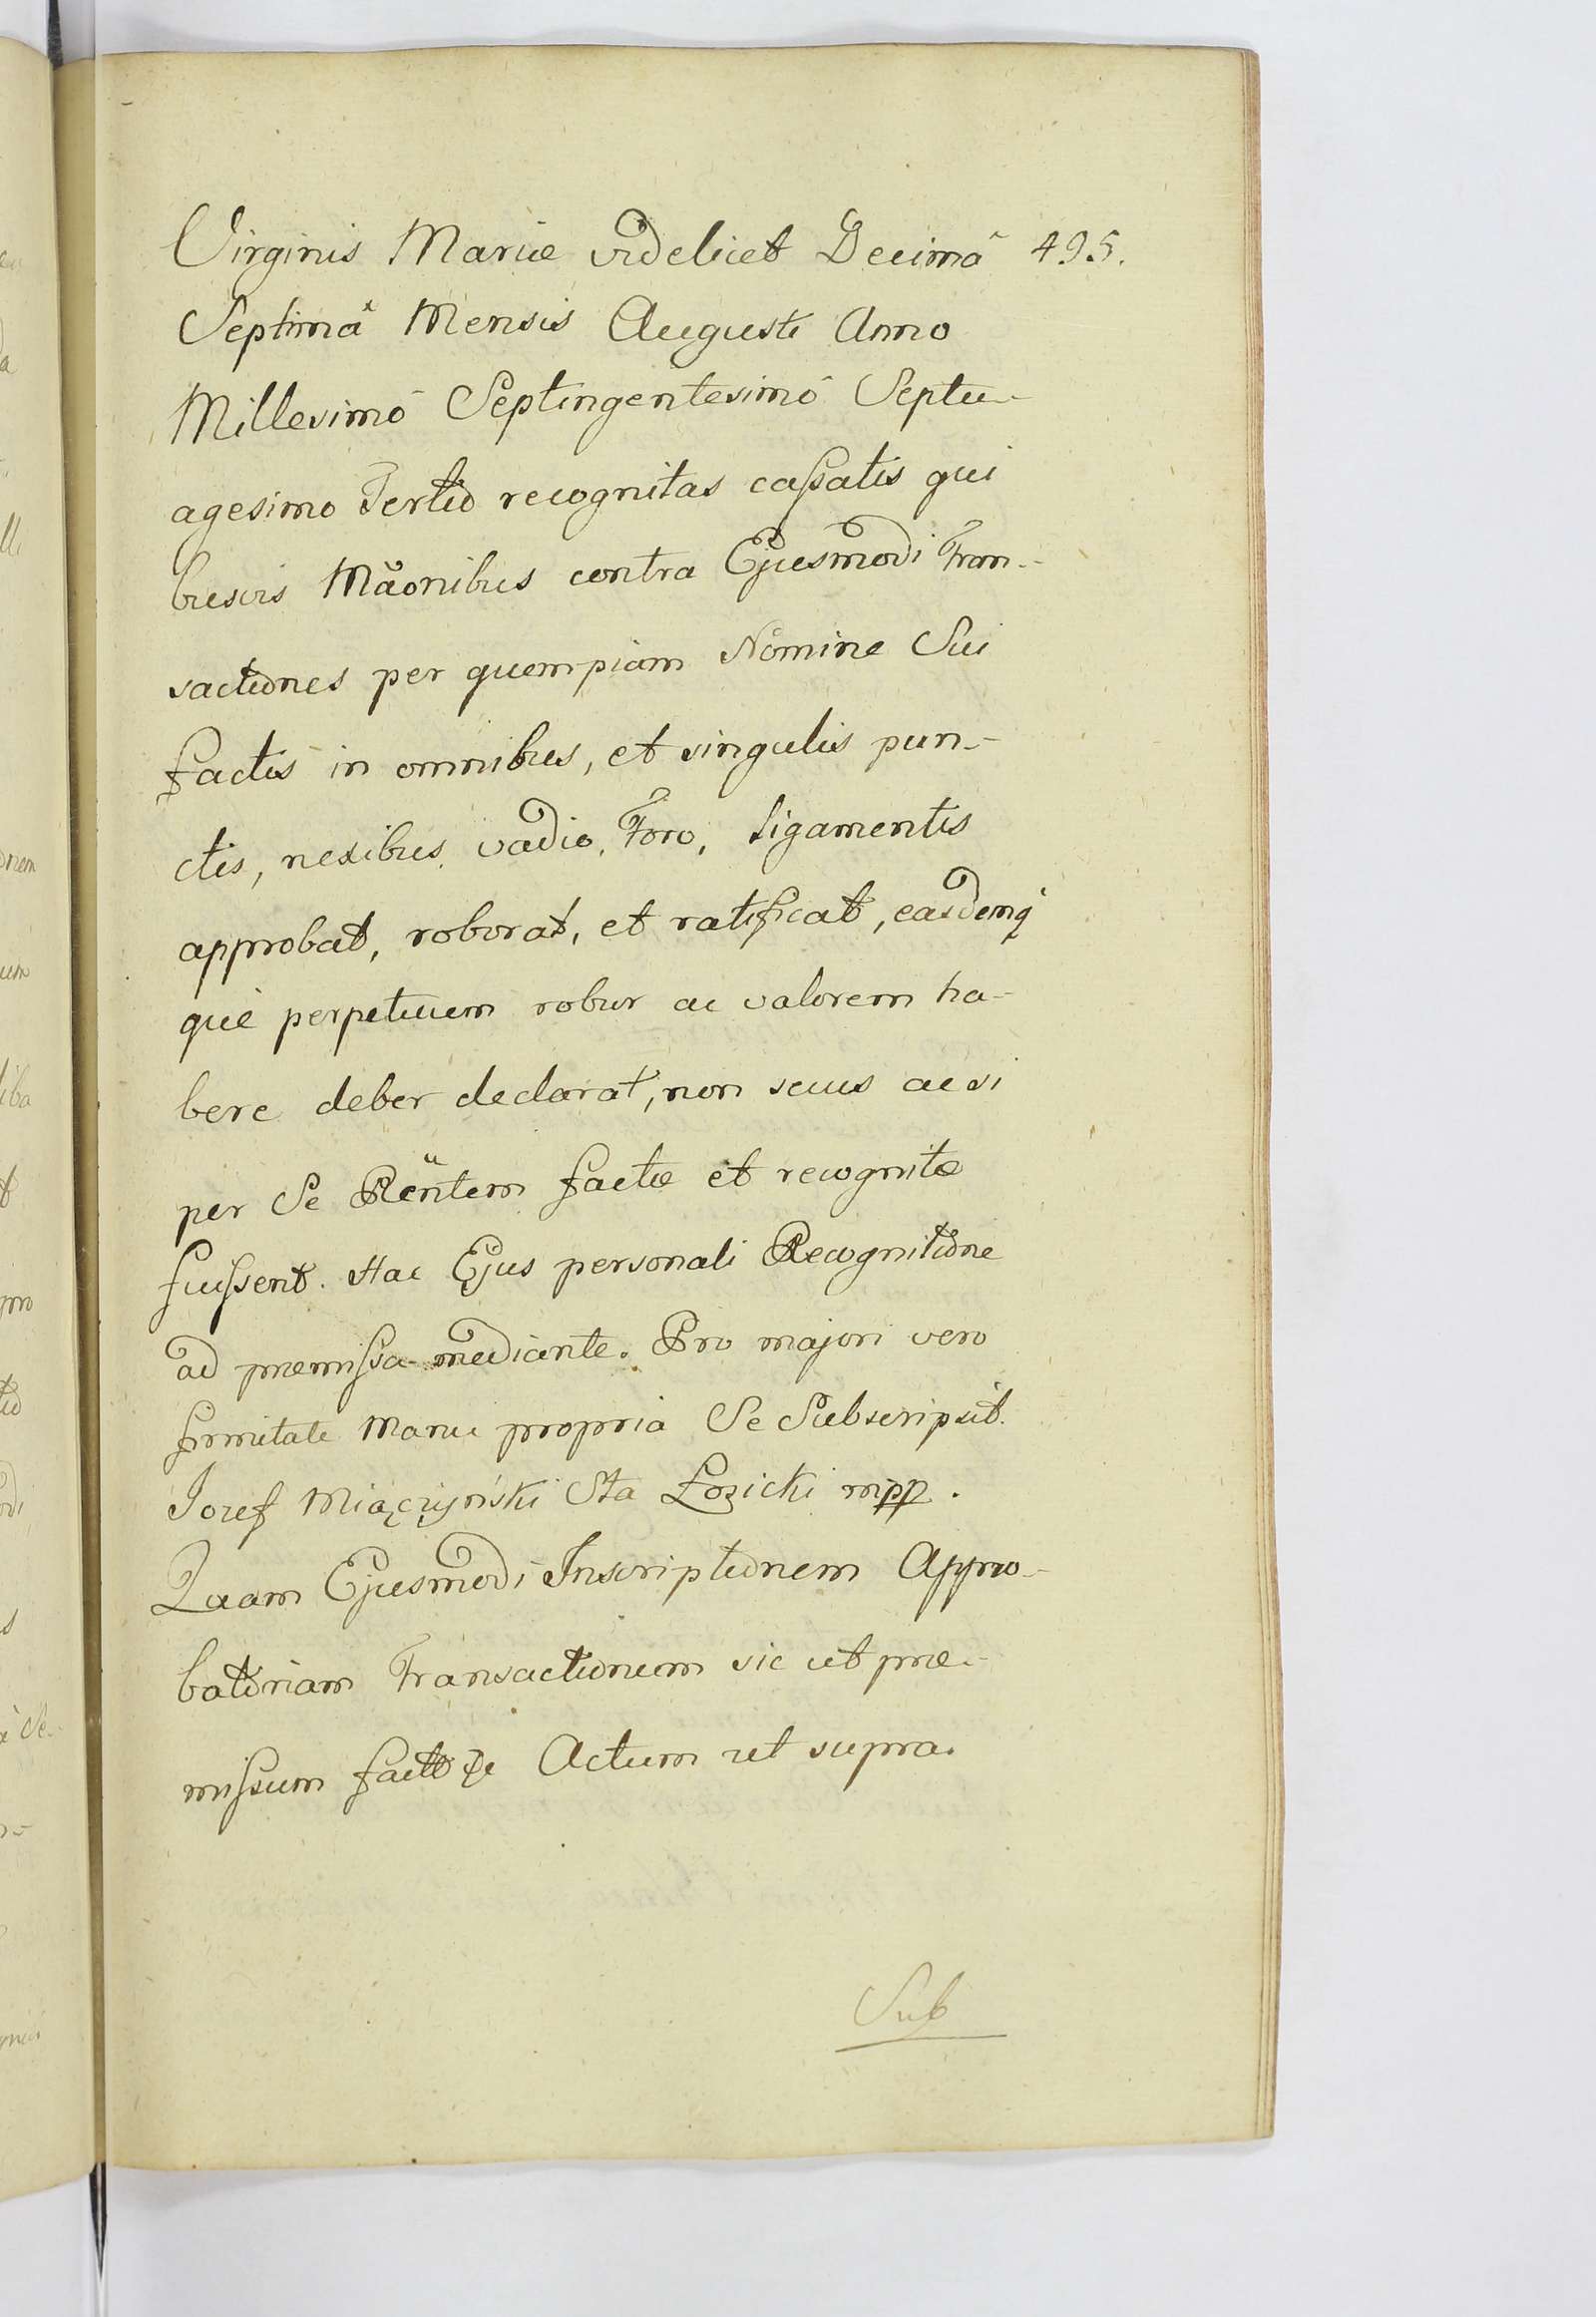 Virginis Mariæ videlicet Decimâ 495.
Septimâ Mensis Augusti Anno
Millesimo Septingentesimo Septu-
agesimo Tertio recognitas caſsatis qui
busvis Mãonibus contra Ejusmodi Tran-
sactiones per quempiam Nomine Sui
factis in omnibus, et singulis pun-
ctis, nexibus, vadio, Foro, ligamentis
approbat, roborat, et ratificat, easdemq̃
què perpetuum robur ac valorem ha-
bere deber declarat, non secus ac si
per Se Rẽntem factæ et recognitæ
fuiſsent. Hac Ejus personali Recognitione
ad præmiſsa mediante. Pro majori vero
firmitate Manu propria Se Subscripsit.
Iozef Miączyński Sta Łozicki mpp.
Quam Ejusmodi Inscriptionem Appro-
batoriam Transactionum sic ut præ-
miſsum factæ Actum ut supra.
Sub